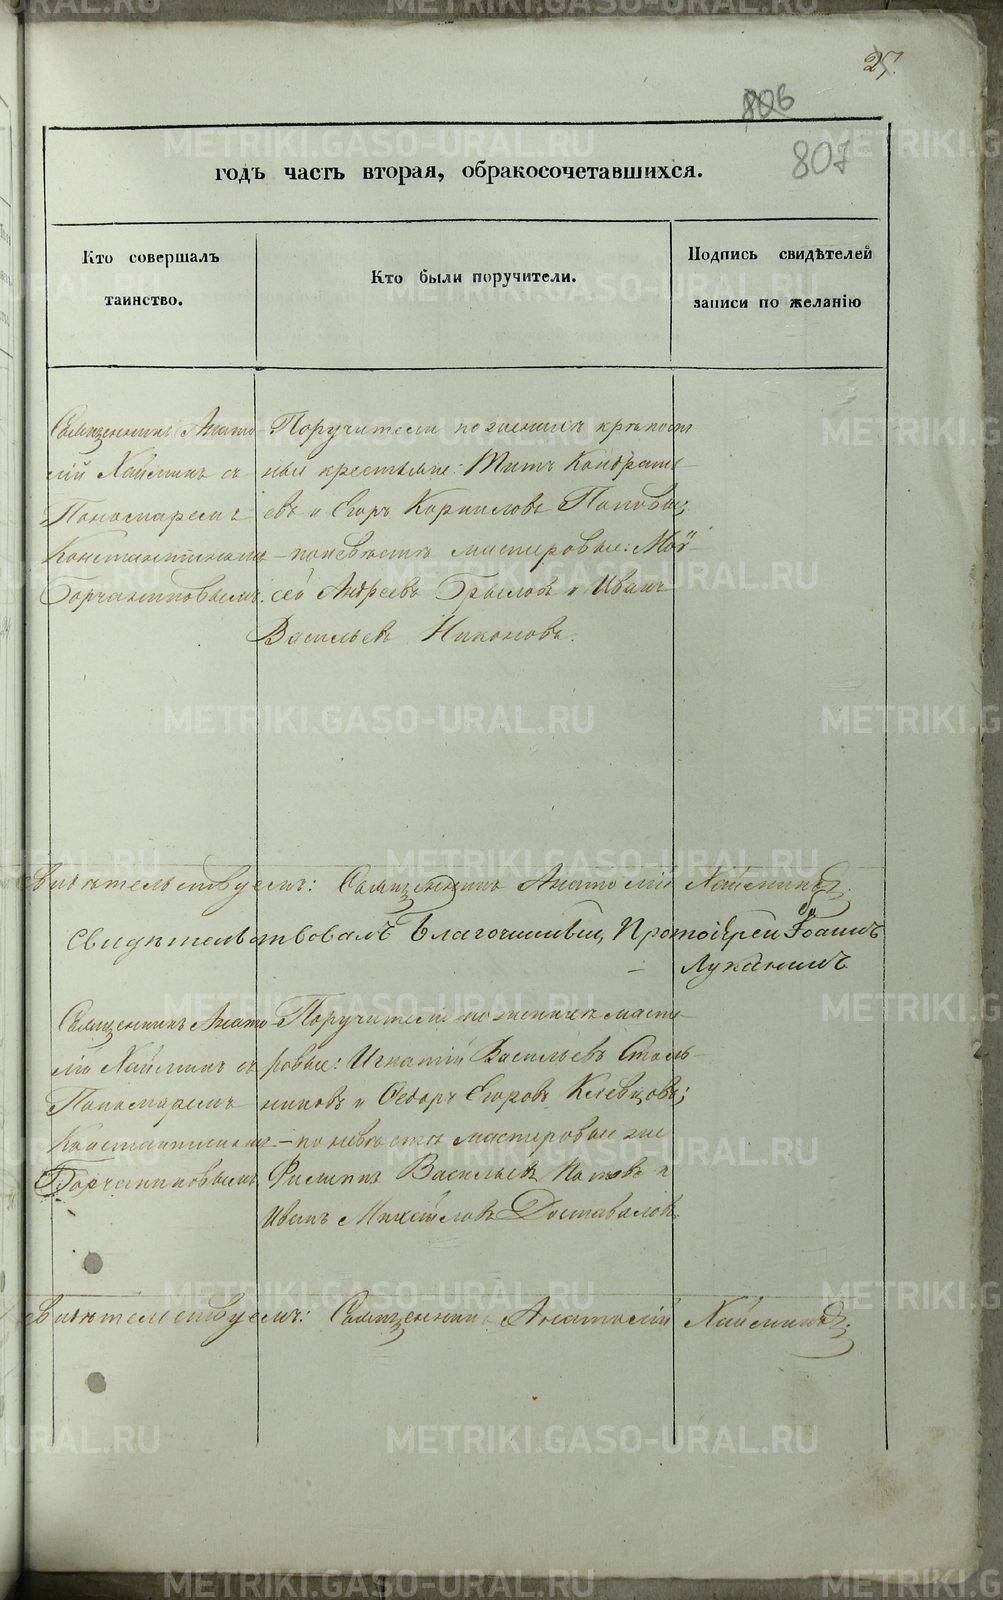 27.
806
807
годъ часть вторая, обракосочетавшихся.
Кто совершалъ
таинство.
Кто были поручители.
Подпись свидѣтелей
записи по желанію
Священникъ Анато
лій Хаймкинъ съ
Пономаремъ
Константиномъ
Борчаниновымъ.
Поручители по женихѣ крѣпост
ные крестьяне: Титъ Кондрать
евъ и Егоръ Корниловъ Поповы;
– по невѣстѣ мастеровые: Мои
сей Андреевъ и Иванъ
Васильевъ Никоновъ.
Священникъ Анатолій
Свидѣтельствовалъ Благочинный, Протоіерей Іоаннъ
Луканинъ
Священникъ Анато
лій съ
Пономаремъ
Константиномъ
Борчаниновымъ
Поручители по женихѣ масте
ровые: Игнатій Васильевъ Столь–
никовъ и Ѳедоръ Егоровъ Клевцовъ;
– по невѣстѣ мастеровые же
Филиппъ Васильевъ и
Иванъ Михайловъ Доставаловъ
Священникъ Анатолій
METRIKI.GASO-URAL.RU